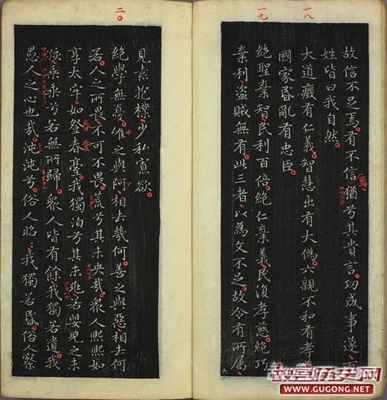 一八
一九
故信不足焉有不信猶兮其貴言功成事遂百
姓皆曰我自然
大道廢有仁義智慧出有大偽六親不和有孝慈
國家昏亂有忠臣
絕聖棄智民利百倍絕仁棄義民復孝慈絕巧
棄利盜賊無有此三者以為文不足故令有所屬
二〇
見素抱樸少私寡欲
絕學無憂唯之與阿相去幾何善之與惡相去何
若人之所畏不可不畏荒兮其未央哉眾人熙熙如
享太牢如登春臺我獨泊兮其未兆若嬰兒之未
孩乘乘兮若無所歸眾人皆有餘我獨若遺我
愚人之心也哉沌沌兮俗人昭昭我獨若昏俗察
WWW.GUGONG.NET